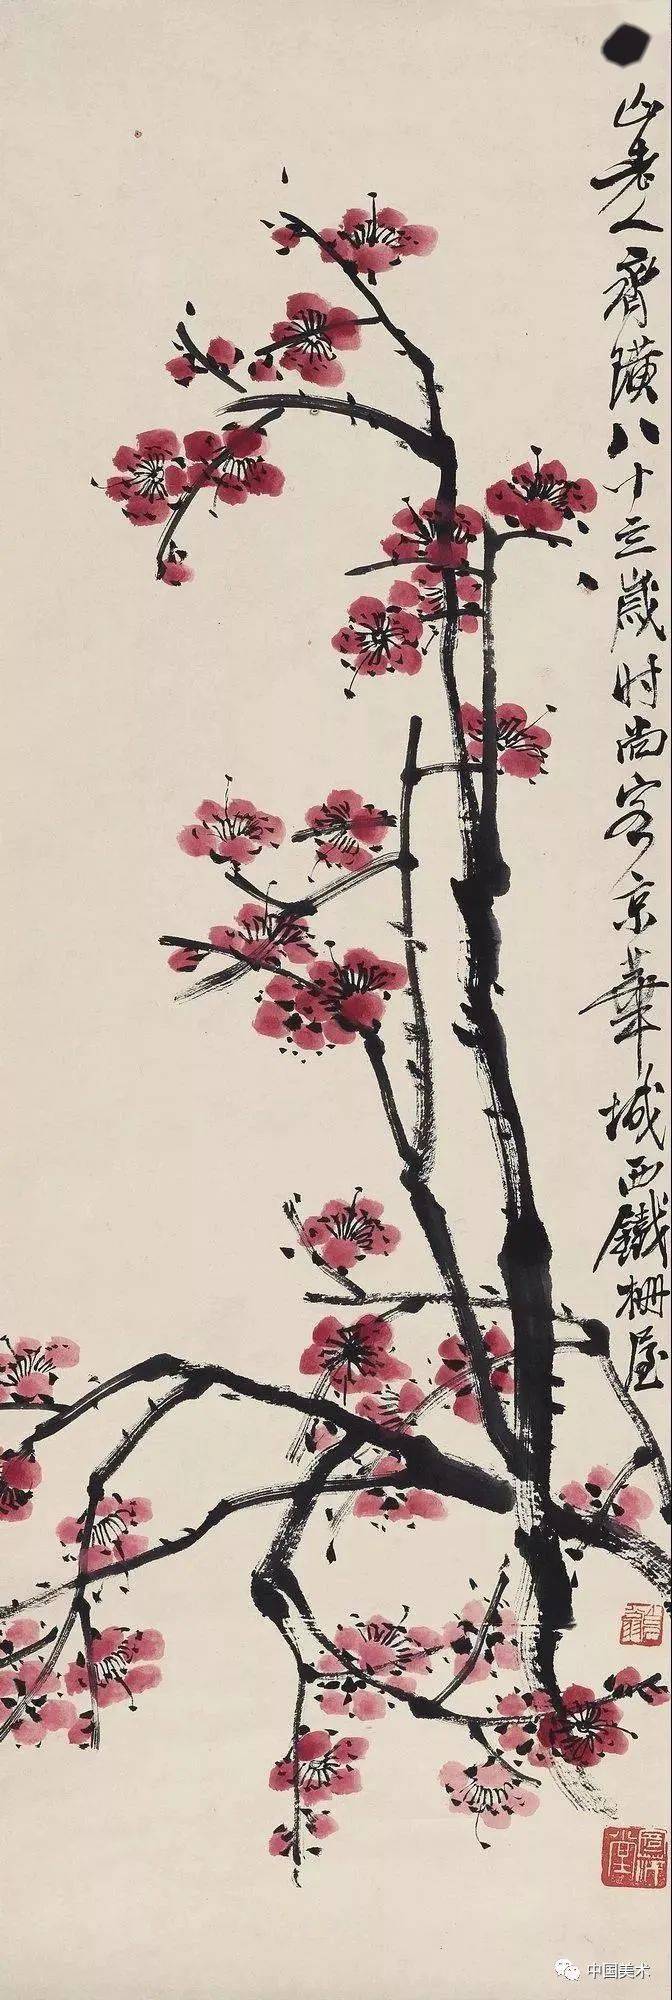 山老人齊璜八十三歲时尚客京華城西鐵柵屋
中国美术